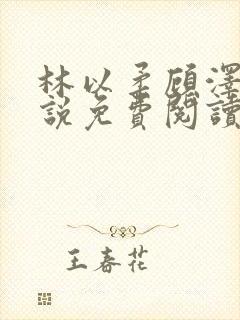 林以柔顾澤
說免費閱讀
王春花